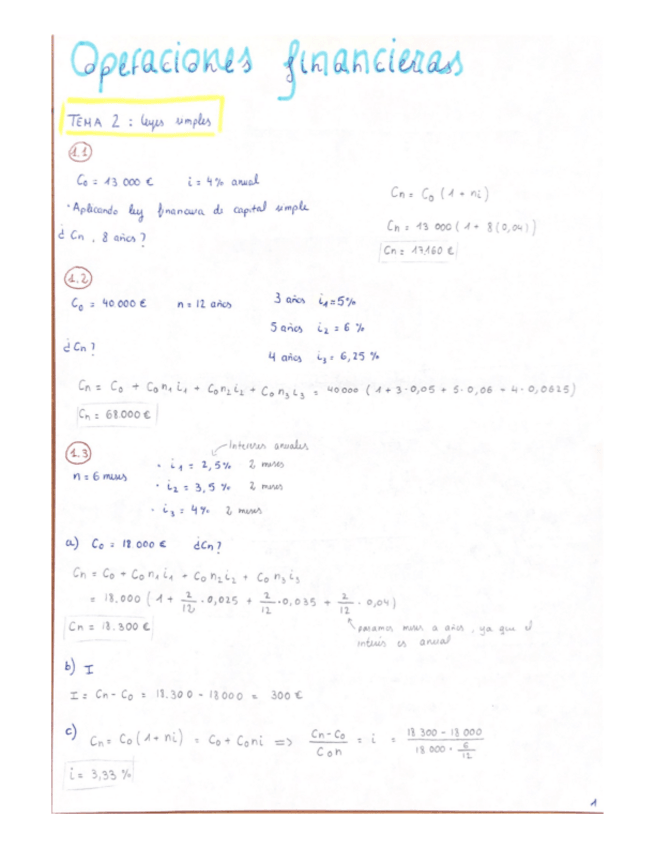 Operaciones financieras
TEMA 2 : leyes simples
1.1
C₀ = 13 000 €   i = 4% anual
· Aplicando ley financiera de capital simple
¿ Cn , 8 años ?
Cn = C₀ (1 + ni)
Cn = 13 000 ( 1 + 8 (0,04) )
Cn = 17.160 €
1.2
C₀ = 40 000 €   n = 12 años
3 años   i₁ = 5%
5 años   i₂ = 6 %
4 años   i₃ = 6,25 %
¿ Cn ?
Cn = C₀ + C₀n₁i₁ + C₀n₂i₂ + C₀n₃i₃ = 40 000 ( 1 + 3·0,05 + 5·0,06 + 4·0,0625)
Cn = 68.000 €
1.3
Intereses anuales
n = 6 meses
· i₁ = 2,5%   2 meses
· i₂ = 3,5 %   2 meses
· i₃ = 4%   2 meses
a) C₀ = 18 000 €   ¿Cn?
Cn = C₀ + C₀n₁i₁ + C₀n₂i₂ + C₀n₃i₃
= 18.000 ( 1 + 2/12 · 0,025 + 2/12 · 0,035 + 2/12 · 0,04)
Cn = 18.300 €
pasamos meses a años, ya que el
interés es anual
b) I
I = Cn - C₀ = 18.300 - 18000 = 300 €
c) Cn = C₀ (1 + ni) = C₀ + C₀ni => Cn - C₀ / C₀n = i = 18 300 - 18 000 / 18 000 · 6/12
i = 3,33 %
1